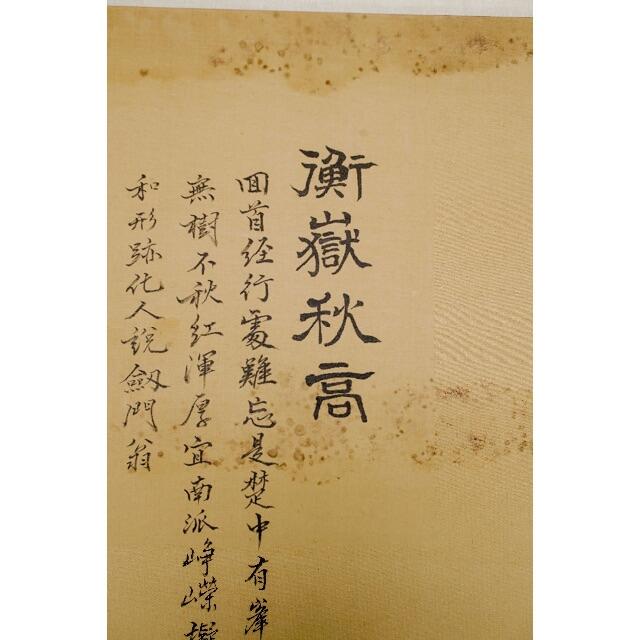 衡嶽秋高
回首经行處難忘是楚中有峯
無樹不秋红渾厚宜南派崢嶸擬
和形跡化人說劔門翁